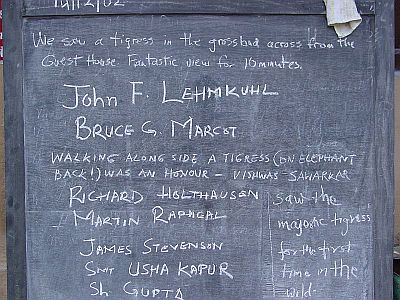 We saw a tigress in the grassland across from the
Guest House. Fantastic view for 10 minutes.
John F. LEHMKUHL
BRUCE G. MARCOT
WALKING ALONG SIDE A TIGRESS (ON ELEPHANT
BACK!) WAS AN HONOUR - VISHWAS SAWARKAR
RICHARD HOLTHAUSEN
MARTIN RAPHAEL
JAMES STEVENSON
SMT USHA KAPUR
Sh GUPTA
saw the
majestic tigress
for the first
time in the
wild.